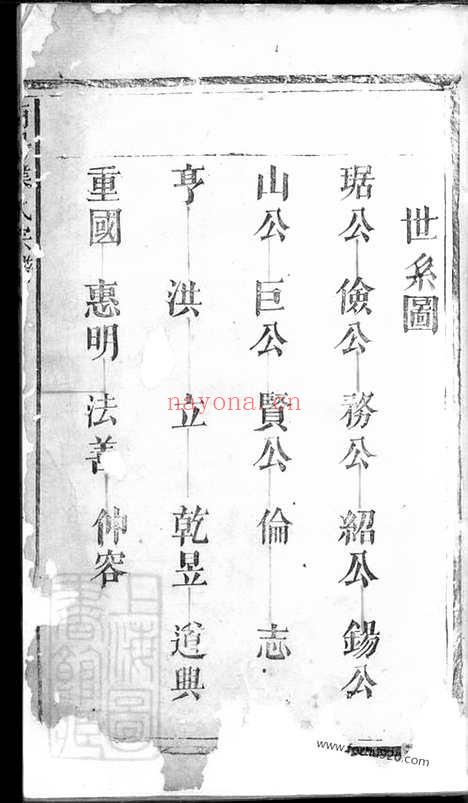 世系圖
琚公 儉公 務公 紹公 鍚公
山公 巨公 賢公 倫 志
亨 洪 立 乾昱 道興
重國 惠明 法善 仲容
葉氏宗譜
nayona.cn
上海圖書館藏
www.fozhu920.com